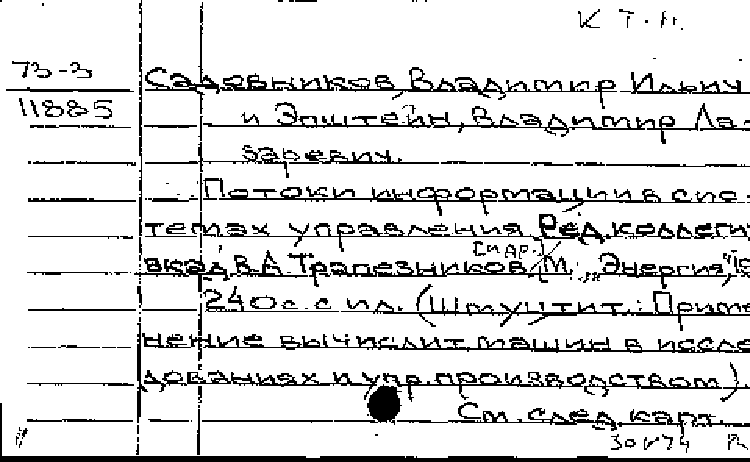 К Т.п.
73-3
11885
Садовников, Владимир Ильич
и Эпштейн, Владимир Ла-
заревич.
Потоки информации в сис-
темах управления. Ред. коллегия:
[и др.]
акад. В.А. Трапезников М., "Энергия",
240 с. с ил. (Штуцтит.: Приме-
нение вычислит. машин в иссле-
дованиях и упр. производством)
См. след. карт.
30 V 74